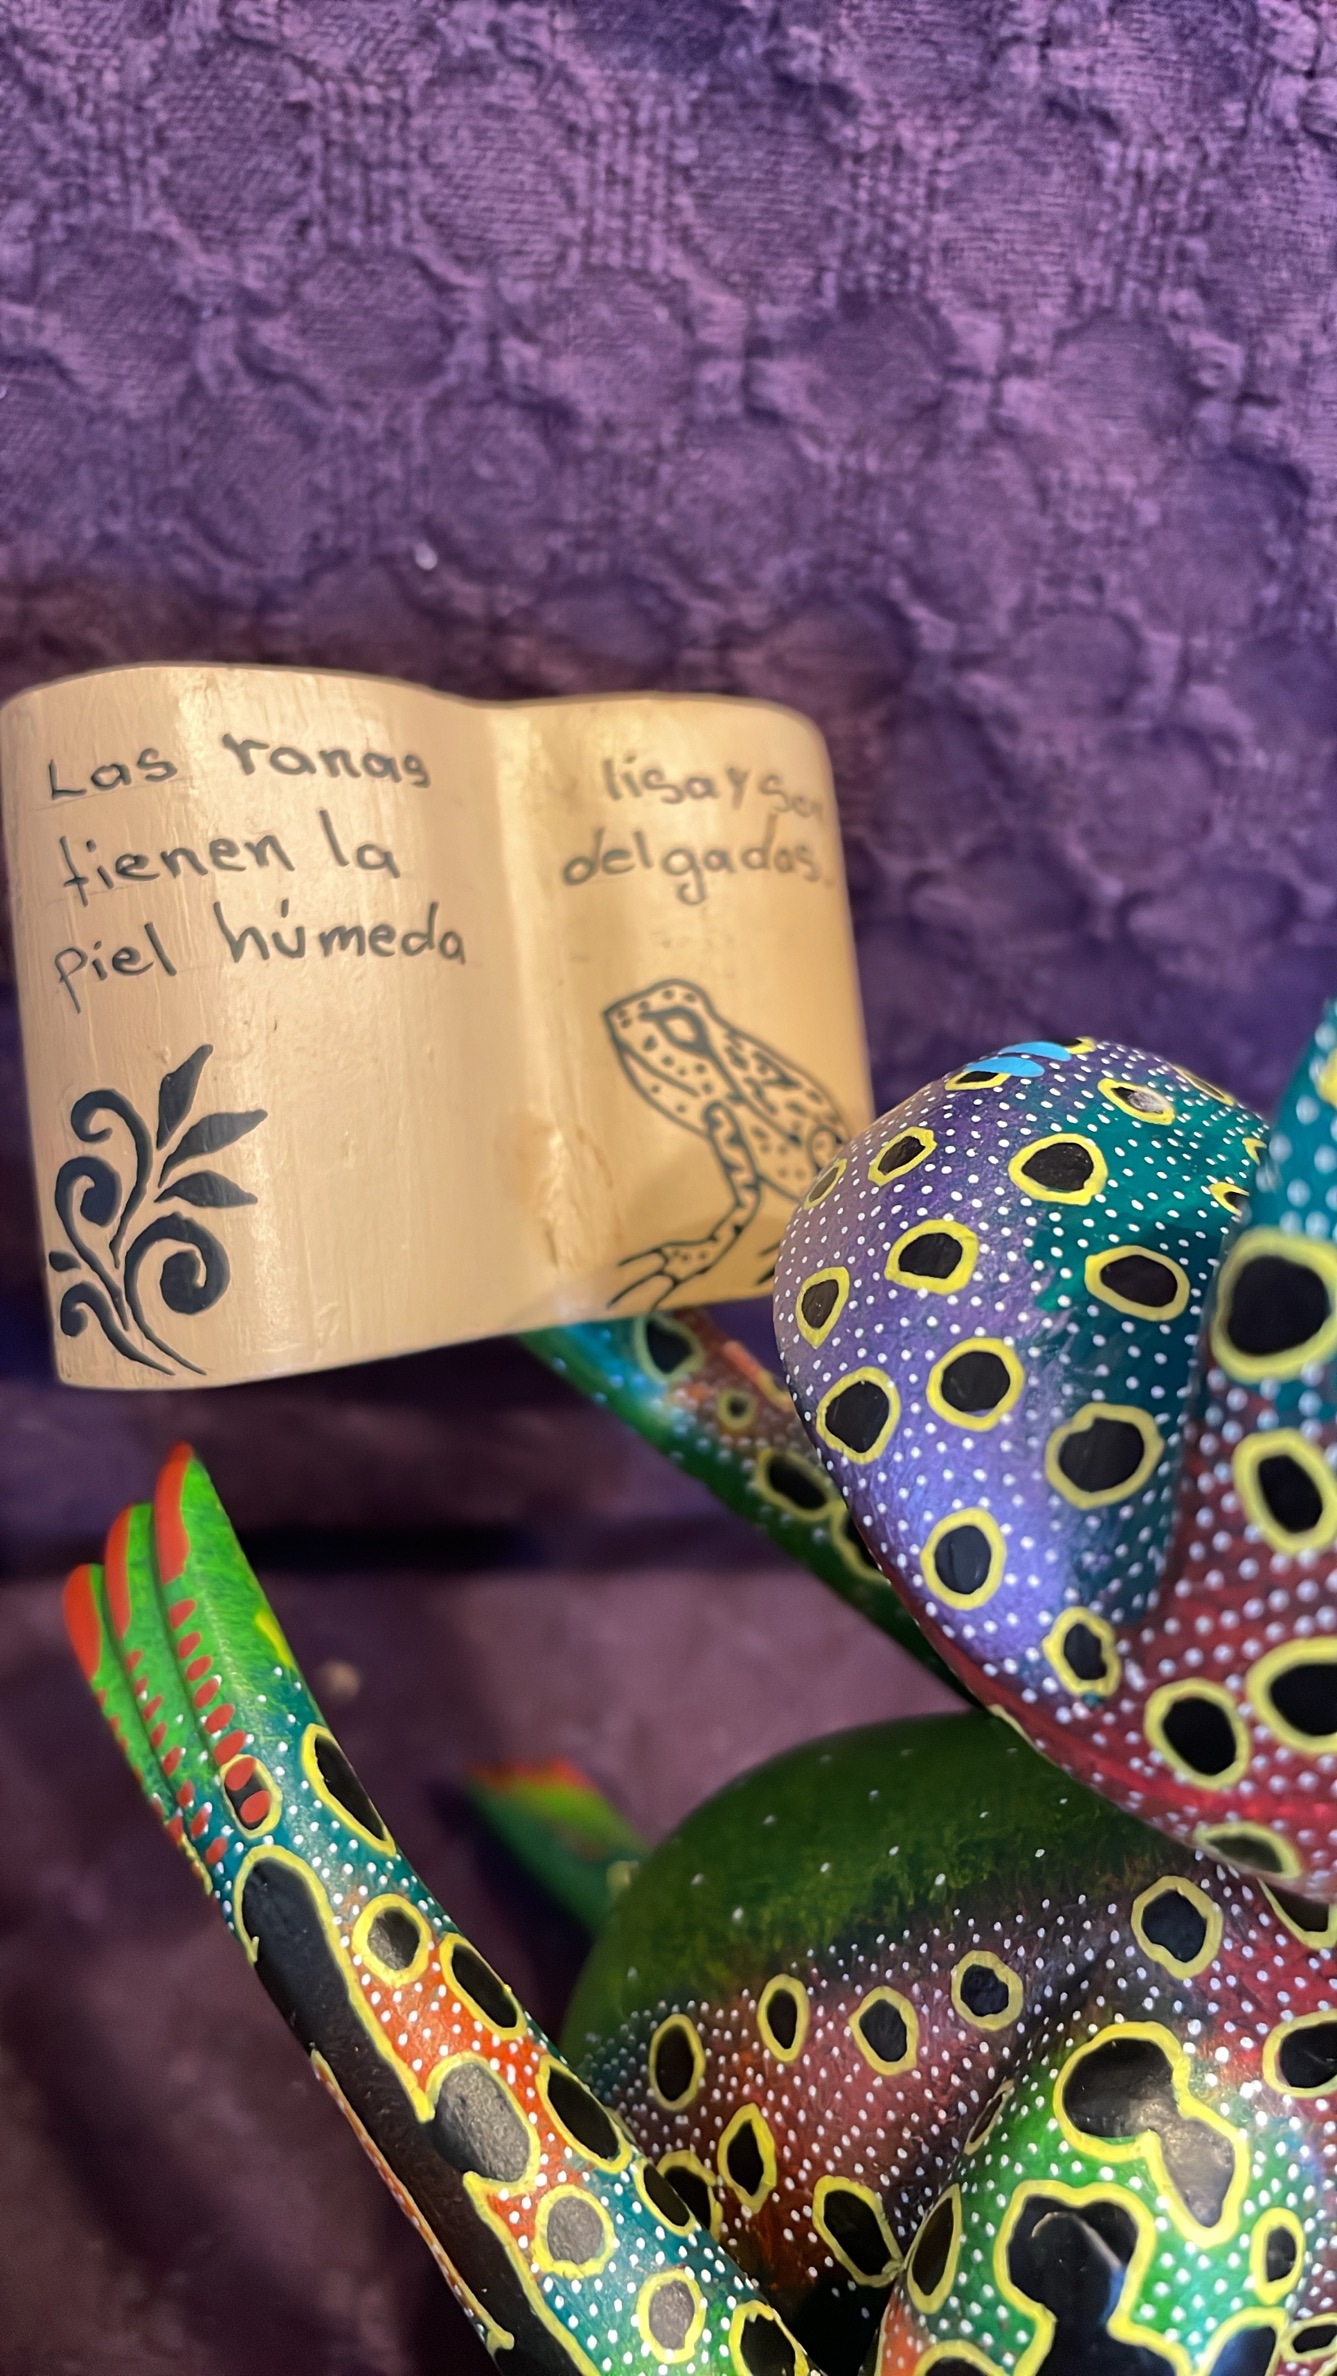 Las ranas
tienen la
piel húmeda
lisa y son
delgadas.